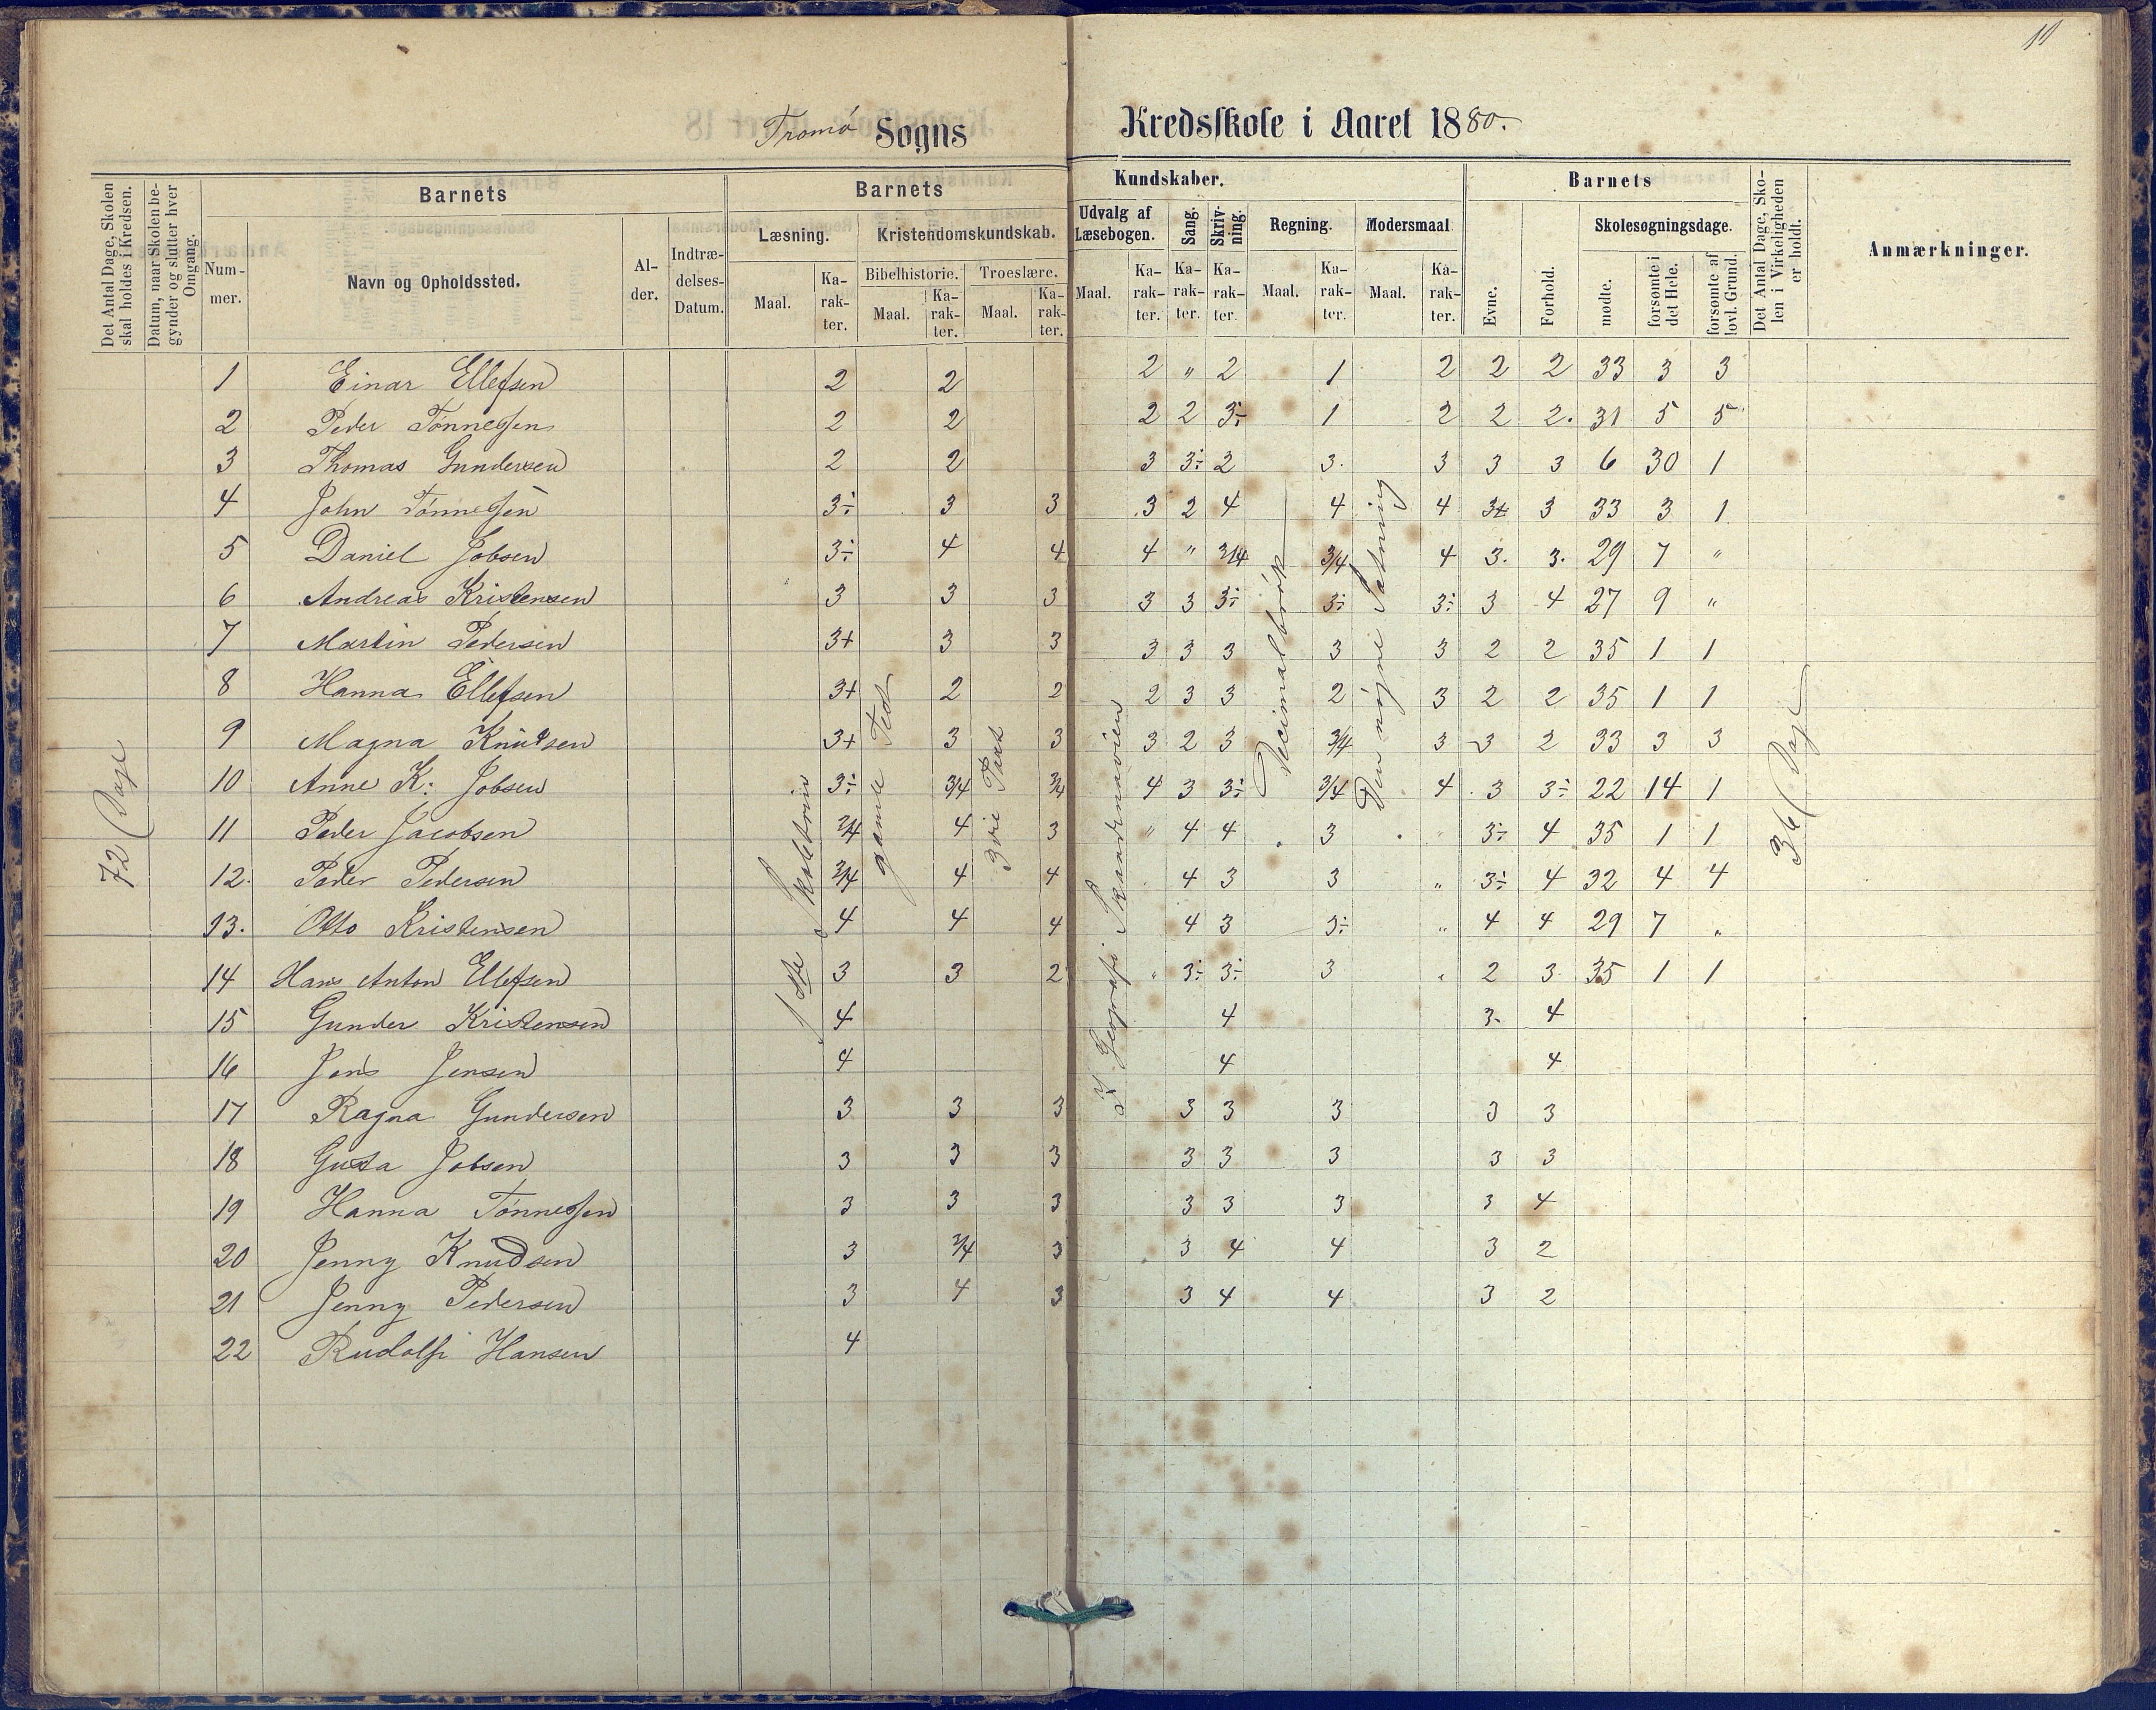 11
Tromø Sogns Kredsskole i Aaret 1880.
Det Antal Dage, Skolen skal holdes i Kredsen.
Datum, naar Skolen begynder og slutter hver Omgang.
Barnets
Nummer.
Navn og Opholdssted.
Alder.
Indtrædelses-Datum.
Barnets Kundskaber.
Læsning.
Maal.
Karakter.
Kristendomskundskab.
Bibelhistorie.
Maal.
Karakter.
Troeslære.
Maal.
Karakter.
Udvalg af Læsebogen.
Maal.
Karakter.
Sang.
Karakter.
Skrivning.
Karakter.
Regning.
Maal.
Karakter.
Modersmaal
Maal.
Karakter.
Barnets
Evne.
Forhold.
Skolesøgningsdage.
mødte.
forsømte i det Hele.
forsømte af lovl. Grund.
Det Antal Dage, Skolen i Virkeligheden er holdt.
Anmærkninger.
1 Einar Ellefsen 2 2 2 " 2 1 2 2 2 33 3 3
2 Peder Tønnessen 2 2 2 2 3÷ 1 2 2 2. 31 5 5
3 Thomas Gundersen 2 2 3 3÷ 2 3. 3 3 3 6 30 1
4 John Tønnessen 3÷ 3 3 3 2 4 4 4 3+ 3 33 3 1
5 Daniel Jobsen 3÷ 4 4 4 " 3/4 3/4 4 3. 3. 29 7 "
6 Andreas Kristensen 3 3 3 3 3 3÷ 3÷ 3÷ 3 4 27 9 "
7 Martin Pedersen 3+ 3 3 3 3 3 3 3 2 2 35 1 1
8 Hanna Ellefsen 3+ 2 2 2 3 3 2 3 2 2 35 1 1
9 Magna Knutsen 3+ 3 3 3 2 3 3/4 3 3 2 33 3 3
10 Anne K: Jobsen 3÷ 3/4 3/4 4 3 3÷ 3/4 4 3 3÷ 22 14 1
11 Peder Jacobsen 3/4 4 3 " 4 4 3 " 3÷ 4 35 1 1
12. Peder Pedersen 3/4 4 4 4 3 3 " 3÷ 4 32 4 4
13. Otto Kristensen 4 4 4 4 3 3÷ " 4 4 29 7 "
14 Hans Anton Ellefsen 3 3 2 " 3÷ 3÷ 3 " 2 3 35 1 1
15 Gunder Kristensen 4 4 3. 4
16 Jens Jensen 4 4 4
17 Ragna Gundersen 3 3 3 3 3 3 3 3
18 Gusta Jobsen 3 3 3 3 3 3 3 3
19 Hanna Tønnessen 3 3 3 3 3 3 3 4
20 Jenny Knudsen 3 3/4 3 3 4 4 3 2
21 Jenny Pedersen 3 4 3 3 4 4 3 2
22 Rudolf Hansen 4
72 Dage
1ste Skoletrin
gamle Test
3die Part
I Geografi Skandinavien
Decimalbrøk
Den nøgne Sætning
36 Dage